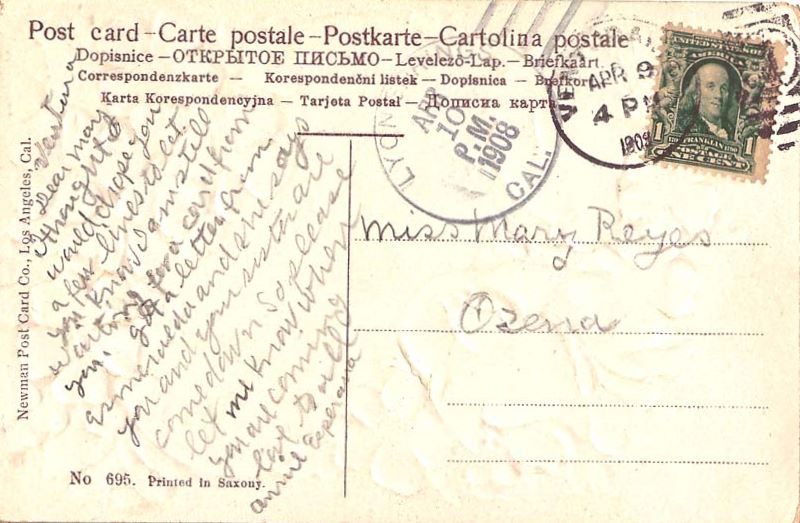 Post card – Carte postale – Postkarte – Cartolina postale
Dopisnice — ОТКРЫТОЕ ПИСЬМО — Levelező-Lap. — Briefkaart.
Correspondenzkarte — Korespondenční listek — Dopisnica — Brefkort
Karta Korespondencyjna — Tarjeta Postal — Дописна карта
APR 9
4 PM
1908
APR
10
P.M.
1908
LYONS
CAL.
UNITED STATES
FRANKLIN
1 POSTAGE 1
ONE CENT
Miss Mary Reyes
Ozena
Ventura
Dear May
I thought I
would drope you
a few lines to let
you know I am still
waiting for a card from
you. I got a letter from
Esmeralda and she says
you and your sister are
come down So please
let me know when
you are coming
love to all
annie Esperanza
Newman Post Card Co., Los Angeles, Cal.
No 695. Printed in Saxony.